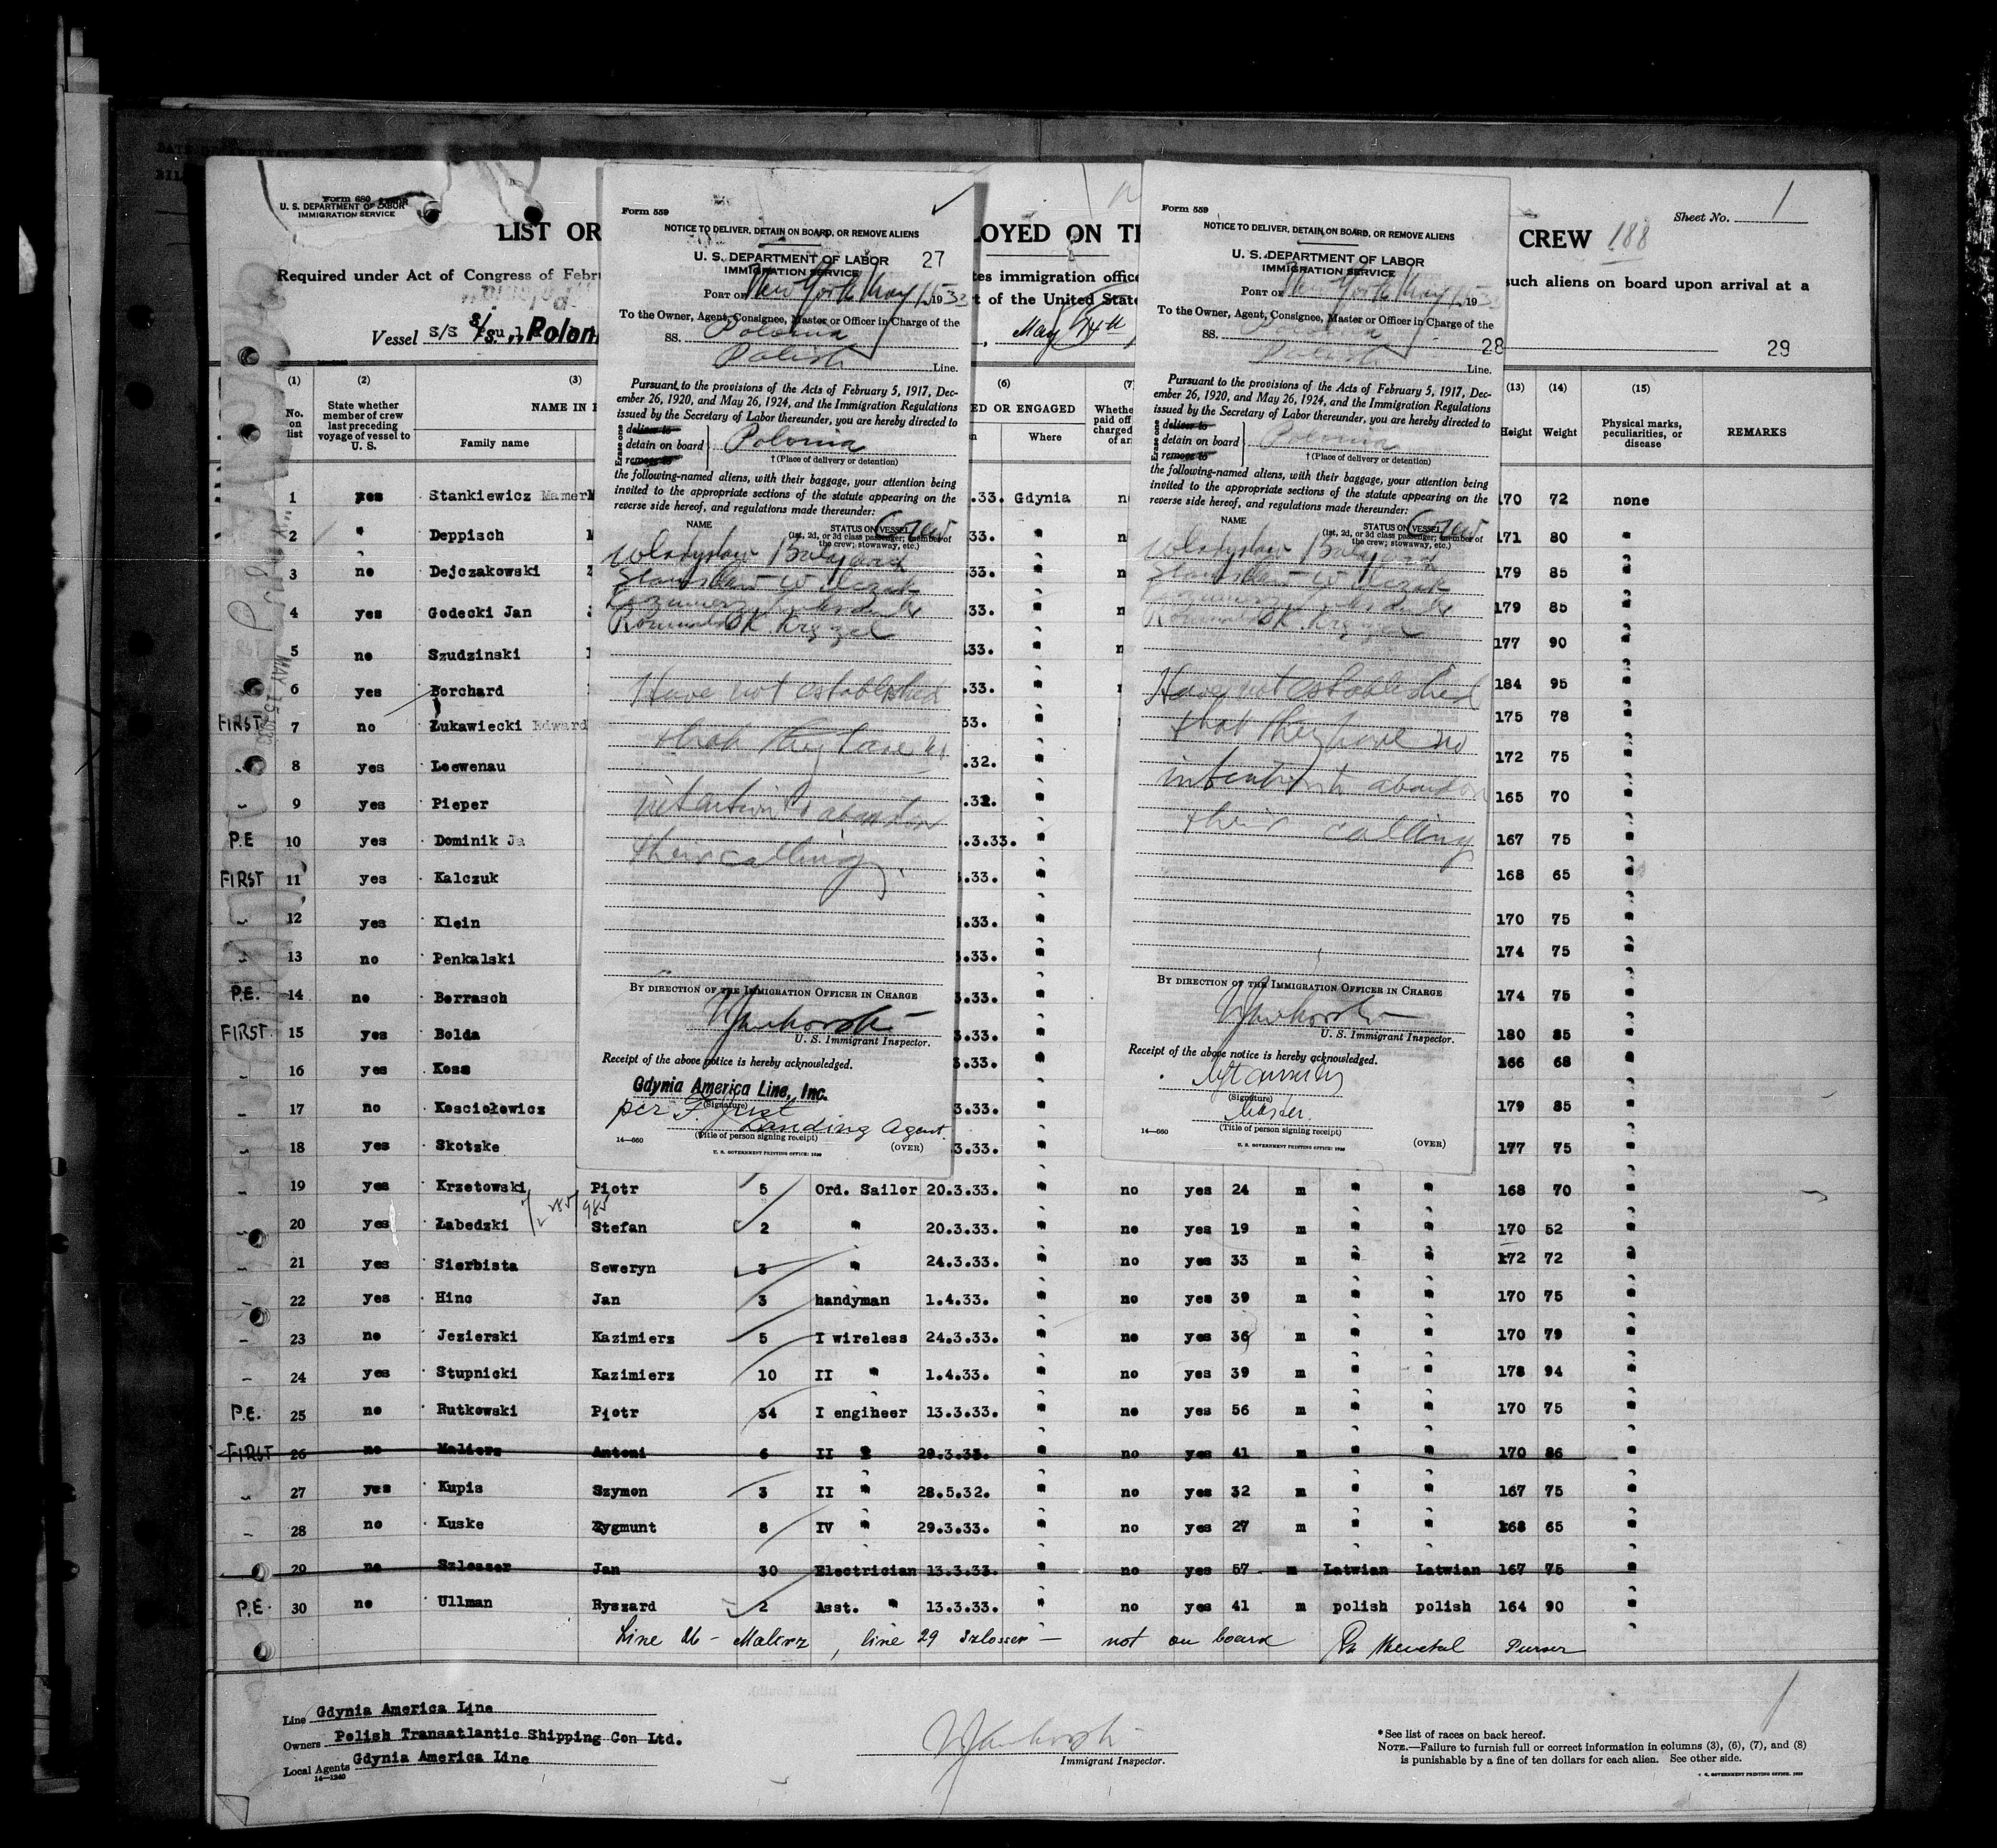 Form 680
U. S. DEPARTMENT OF LABOR
IMMIGRATION SERVICE
Sheet No. 1
LIST OR
LOYED ON TH
CREW 188
Required under Act of Congress of Febru
tes immigration office
such aliens on board upon arrival at a
rt of the United State
Vessel S/S
S/s. „Polon
, May 14th
29
(1) (2) (3) (6) (7 (13) (14) (15)
No. on list
State whether member of crew last preceding voyage of vessel to U. S.
NAME IN F
Family name
ED OR ENGAGED
Where
Height Weight
Physical marks, peculiarities, or disease
REMARKS
Form 559
NOTICE TO DELIVER, DETAIN ON BOARD, OR REMOVE ALIENS
U. S. DEPARTMENT OF LABOR 27
IMMIGRATION SERVICE
PORT OF New York May 15 1933
To the Owner, Agent, Consignee, Master or Officer in Charge of the
SS. Polonia
Polish Line.
Pursuant to the provisions of the Acts of February 5, 1917, Dec-
ember 26, 1920, and May 26, 1924, and the Immigration Regulations
issued by the Secretary of Labor thereunder, you are hereby directed to
Erase one
deliver to
detain on board Polonia
remove to
† (Place of delivery or detention)
the following-named aliens, with their baggage, your attention being
invited to the appropriate sections of the statute appearing on the
reverse side hereof, and regulations made thereunder:
NAME
STATUS ON VESSEL Crew
(1st, 2d, or 3d class passenger; member of
the crew; stowaway, etc.)
Wladyslaw
Stanislaw Wilczak
Kazimierz
Romuald K. Krezel
Have not established
that they have no
intention to abandon
their calling
BY DIRECTION OF THE IMMIGRATION OFFICER IN CHARGE
U. S. Immigrant Inspector.
Receipt of the above notice is hereby acknowledged.
Gdynia America Line, Inc.
(Signature)
per F Just
Landing Agent.
(Title of person signing receipt)
14—660
U. S. GOVERNMENT PRINTING OFFICE: 1930
(OVER)
Form 559
NOTICE TO DELIVER, DETAIN ON BOARD, OR REMOVE ALIENS
U. S. DEPARTMENT OF LABOR
IMMIGRATION SERVICE
PORT OF New York May 15 1933
To the Owner, Agent, Consignee, Master or Officer in Charge of the
SS. Polonia 28
Polish Line.
Pursuant to the provisions of the Acts of February 5, 1917, Dec-
ember 26, 1920, and May 26, 1924, and the Immigration Regulations
issued by the Secretary of Labor thereunder, you are hereby directed to
Erase one
deliver to
detain on board Polonia
remove to
† (Place of delivery or detention)
the following-named aliens, with their baggage, your attention being
invited to the appropriate sections of the statute appearing on the
reverse side hereof, and regulations made thereunder:
NAME
STATUS ON VESSEL Crew
(1st, 2d, or 3d class passenger; member of
the crew; stowaway, etc.)
Wladyslaw
Stanislaw Wilczak
Kazimierz
Romuald K. Krezel
Have not established
that they have no
intention to abandon
their calling
BY DIRECTION OF THE IMMIGRATION OFFICER IN CHARGE
U. S. Immigrant Inspector.
Receipt of the above notice is hereby acknowledged.
(Signature)
Master.
(Title of person signing receipt)
14—660
U. S. GOVERNMENT PRINTING OFFICE: 1930
(OVER)
1 yes Stankiewicz Mamer .33. Gdynia n 170 72 none
2 " Deppisch 33. " n 171 80 "
3 no Dejczakowski 33. " n 179 85 "
4 yes Godecki Jan 33. " n 179 85 "
5 no Szudzinski 33. " n 177 90 "
6 yes Borchard .33. " 184 95 "
FIRST 7 no Żukawiecki Edward 33. " 175 78 "
8 yes Loewenau .32. " 172 75 "
9 yes Pieper .32. " 165 70 "
P.E 10 yes Dominik Ja .3.33. " 167 75 "
FIRST 11 yes Kalczuk .33. " 168 65 "
12 yes Klein .33. " 170 75 "
13 no Penkalski .33. " 174 75 "
P.E. 14 no Borrasch 3.33. " 174 75 "
FIRST 15 yes Bolda 3.33. " 180 85 "
16 yes Koss 3.33. " 166 68 "
17 no Kosciołowicz 3.33. " 179 85 "
18 yes Skotzke 3.33. " 177 75 "
19 yes Krzetowski Piotr 5 Ord. Sailor 20.3.33. " no yes 24 m " " 168 70 "
20 yes Łabedzki Stefan 2 " 20.3.33. " no yes 19 m " " 170 52 "
21 yes Sierbista Seweryn 3 " 24.3.33. " no yes 33 m " " 172 72 "
22 yes Hinc Jan 3 handyman 1.4.33. " no yes 39 m " " 170 75 "
23 no Jezierski Kazimierz 5 I wireless 24.3.33. " no yes 36 m " " 170 79 "
24 yes Stupnicki Kazimierz 10 II " 1.4.33. " no yes 39 m " " 178 94 "
P.E. 25 no Rutkowski Piotr 34 I engiheer 13.3.33. " no yes 56 m " " 170 75 "
FIRST 26 no Malierz Antoni 6 II " 29.3.33. " no yes 41 m " " 170 86 "
27 yes Kupis Szymon 3 II " 28.5.32. " no yes 32 m " " 167 75 "
28 no Kuske Zygmunt 8 IV " 29.3.33. " no yes 27 m " " 168 65 "
29 no Szlosser Jan 30 Electrician 13.3.33. " no yes 57 m Latwian Latwian 167 75 "
P.E 30 no Ullman Ryszard 2 Asst. " 13.3.33. " no yes 41 m polish polish 164 90 "
Line 26 - Malierz , line 29 Szlosser — not on board Purser
Line Gdynia America Line
Owners Polish Transatlantic Shipping Con Ltd.
Local Agents Gdynia America Line
14—1240
Immigrant Inspector.
*See list of races on back hereof.
NOTE.—Failure to furnish full or correct information in columns (3), (6), (7), and (8)
is punishable by a fine of ten dollars for each alien. See other side.
U. S. GOVERNMENT PRINTING OFFICE: 1929